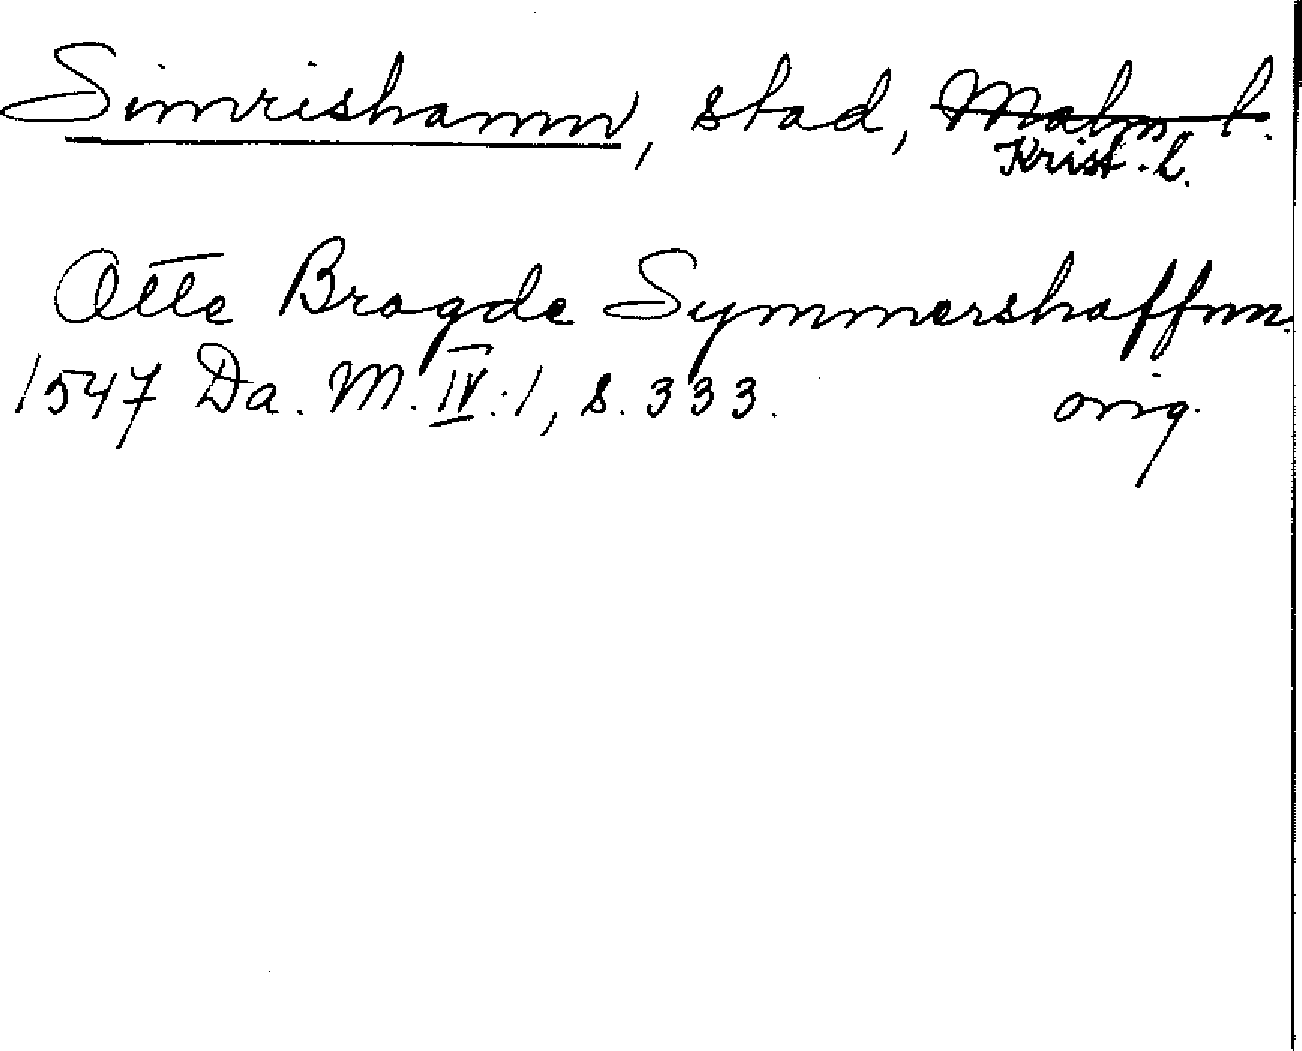 Simrishamn, stad, Malm. l.
Krist. l.
Otte Bragde Symmershaffnn
1547 Da. M. IV:1, s. 333. orig.